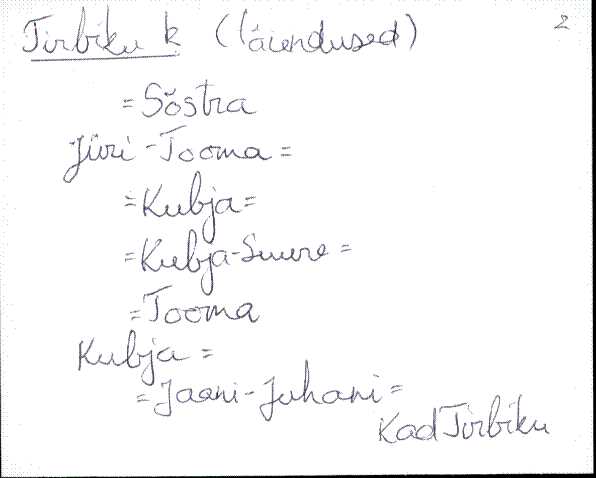 Tirbiku k (läiendused) 2
=Sõstra
Jüri-Tooma=
=Kubja=
=Kubja-Suure=
=Tooma
Kubja=
=Jaani-Juhani=
Kad Tirbiku